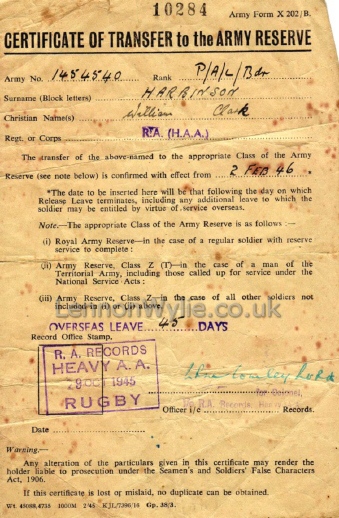 10284
Army Form X 202/B.
CERTIFICATE OF TRANSFER to the ARMY RESERVE
Army No. 1454540 Rank P/A/L/Bdr
Surname (Block letters) HARBINSON
Christian Name(s) William Clark
Regt. or Corps R.A. (H.A.A.)
The transfer of the above-named to the appropriate Class of the Army
Reserve (see note below) is confirmed with effect from 2 FEB 46.*
*The date to be inserted here will be that following the day on which
Release Leave terminates, including any additional leave to which the
soldier may be entitled by virtue of service overseas.
Note.—The appropriate Class of the Army Reserve is as follows :—
(i) Royal Army Reserve—in the case of a regular soldier with reserve
service to complete :
(ii) Army Reserve, Class Z (T)—in the case of a man of the
Territorial Army, including those called up for service under the
National Service Acts :
(iii) Army Reserve, Class Z—in the case of all other soldiers not
included in (i) or (ii) above.
LennonWylie.co.uk
OVERSEAS LEAVE 45 DAYS
Record Office Stamp.
R. A. RECORDS
HEAVY A. A.
29 OCT 1945
RUGBY
for Colonel,
Officer i/c Records.
Date
Warning.—
Any alteration of the particulars given in this certificate may render the
holder liable to prosecution under the Seamen's and Soldiers' False Characters
Act, 1906.
If this certificate is lost or mislaid, no duplicate can be obtained.
Wt. 45088,4735 1000M 2/45 KJL/7396/16 Gp. 38/3.